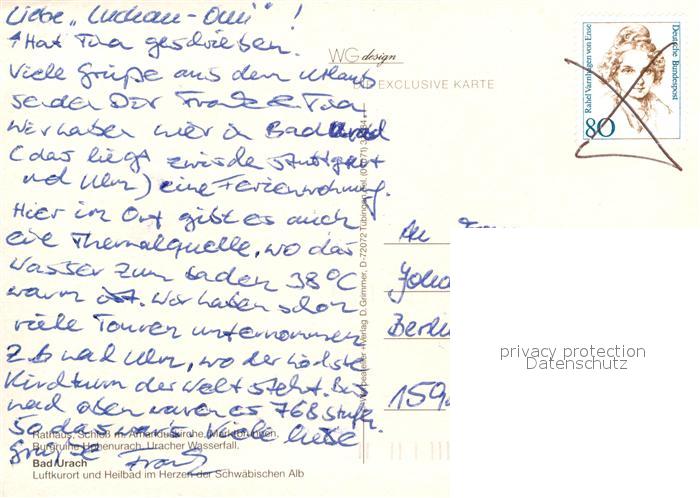 Liebe "Luckau-Omi" !
↑ Hat Tina geschrieben.
Viele Grüße aus dem Urlaub
senden Dir Frank & Tina
Wir haben hier in Bad Urach
(das liegt zwischen Stuttgart
und Ulm) eine Ferienwohnung.
Hier im Ort gibt es auch
eine Thermalquelle, wo das
Wasser zum baden 38°C
warm ist. Wir haben schon
viele Touren unternommen
z.b nach Ulm, wo der höchste
Kirchturm der Welt steht. Bis
nach oben waren es 768 Stufen.
So das war's Viele liebe
Grüße Frank
Rathaus, Schloß m. Amanduskirche, Marktbrunnen,
Burgruine Hohenurach, Uracher Wasserfall.
Bad Urach
Luftkurort und Heilbad im Herzen der Schwäbischen Alb
WG design
DIE EXCLUSIVE KARTE
Verlag D. Grimmer, D-72072 Tübingen, Tel. (07071)
Rahel Varnhagen von Ense
Deutsche Bundespost
80
An
Berlin
159
privacy protection
Datenschutz